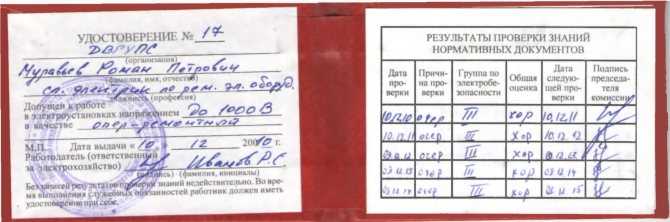 УДОСТОВЕРЕНИЕ № 17
ДВГУПС
(организация)
Муравьев Роман Петрович
(фамилия, имя, отчество)
сл. электрик по рем. эл. оборуд.
(должность (профессия)
Допущен к работе
в электроустановках напряжением до 1000 В
в качестве опер-ремонтный
М.П. Дата выдачи «10» 12 2010 г.
Работодатель (ответственный
за электрохозяйство) Иванов Р.С
(подпись) (фамилия, инициалы)
Без записей результатов проверки знаний недействительно. Во время
выполнения служебных обязанностей работник должен иметь
удостоверение при себе.
РЕЗУЛЬТАТЫ ПРОВЕРКИ ЗНАНИЙ
НОРМАТИВНЫХ ДОКУМЕНТОВ
Дата проверки Причина проверки Группа по электробезопасности Общая оценка Дата следующей проверки Подпись председателя комиссии
10.12.10 очер III хор 10.12.11
10.12.11 очер III хор 10.12.12
очер III хор
03.12.13 очер III хор 03.12.14
03.12.14 очер III хор